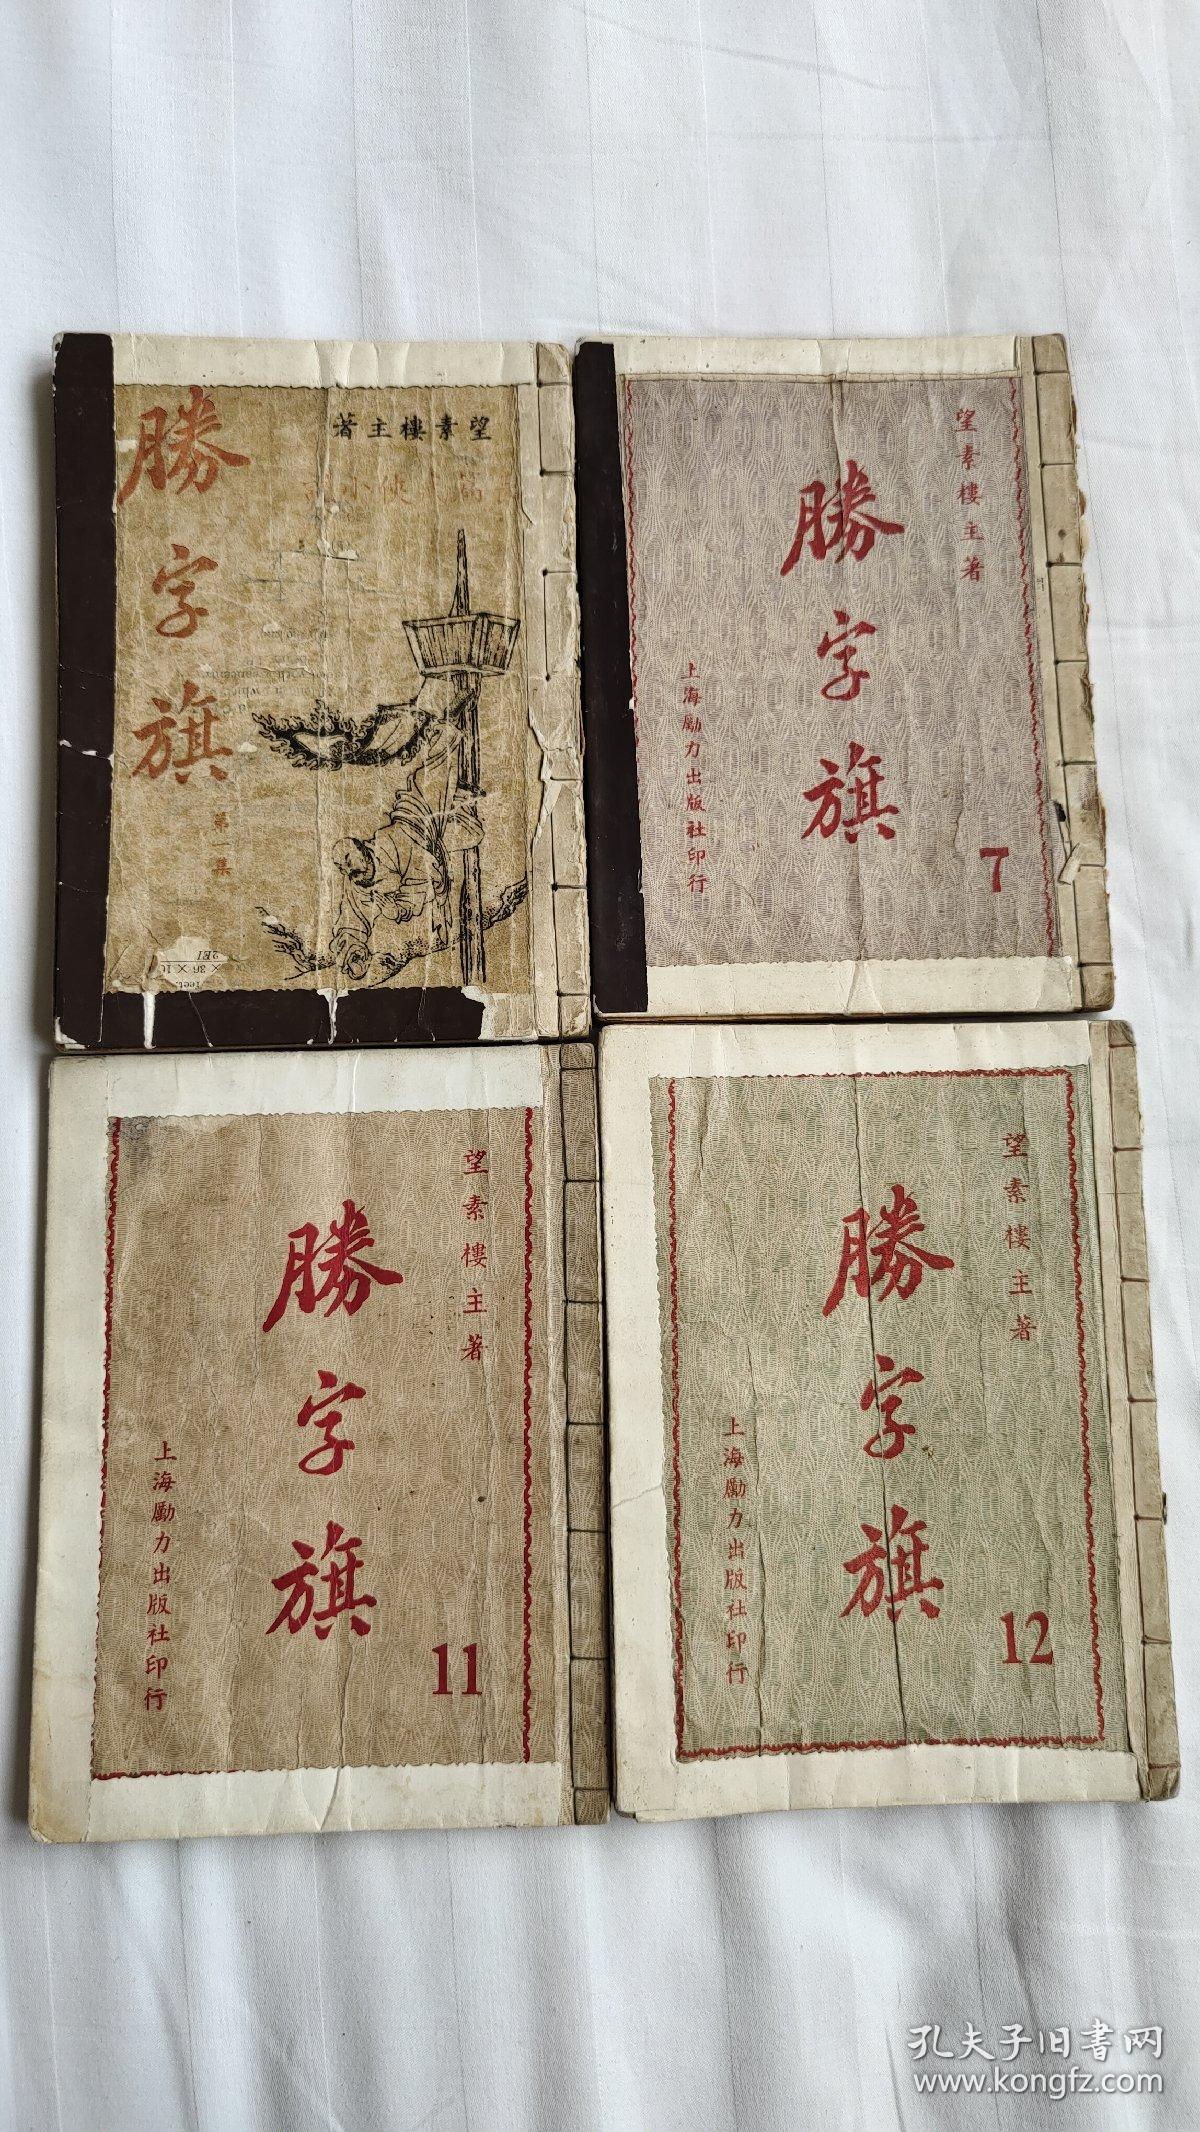 望素樓主著
俠小
勝字旗
第一集
望素樓主著
勝字旗
7
上海勵力出版社印行
望素樓主著
勝字旗
11
上海勵力出版社印行
望素樓主著
勝字旗
12
上海勵力出版社印行
孔夫子旧书网
www.kongfz.com